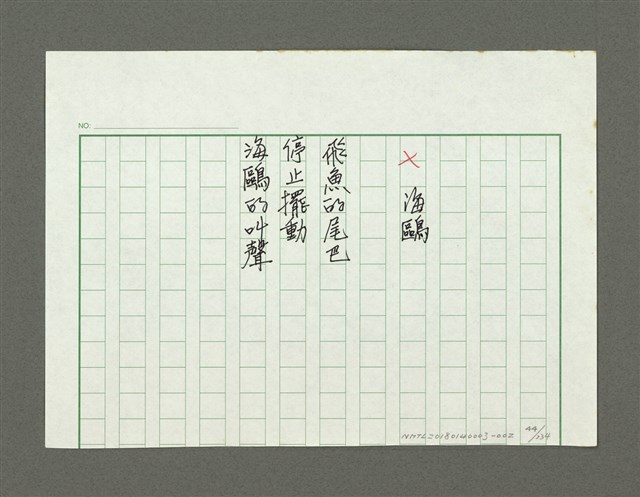 NO:
× 海鷗
飛魚的尾巴
停止擺動
海鷗的叫聲
NMTL20180140003-002
44/234